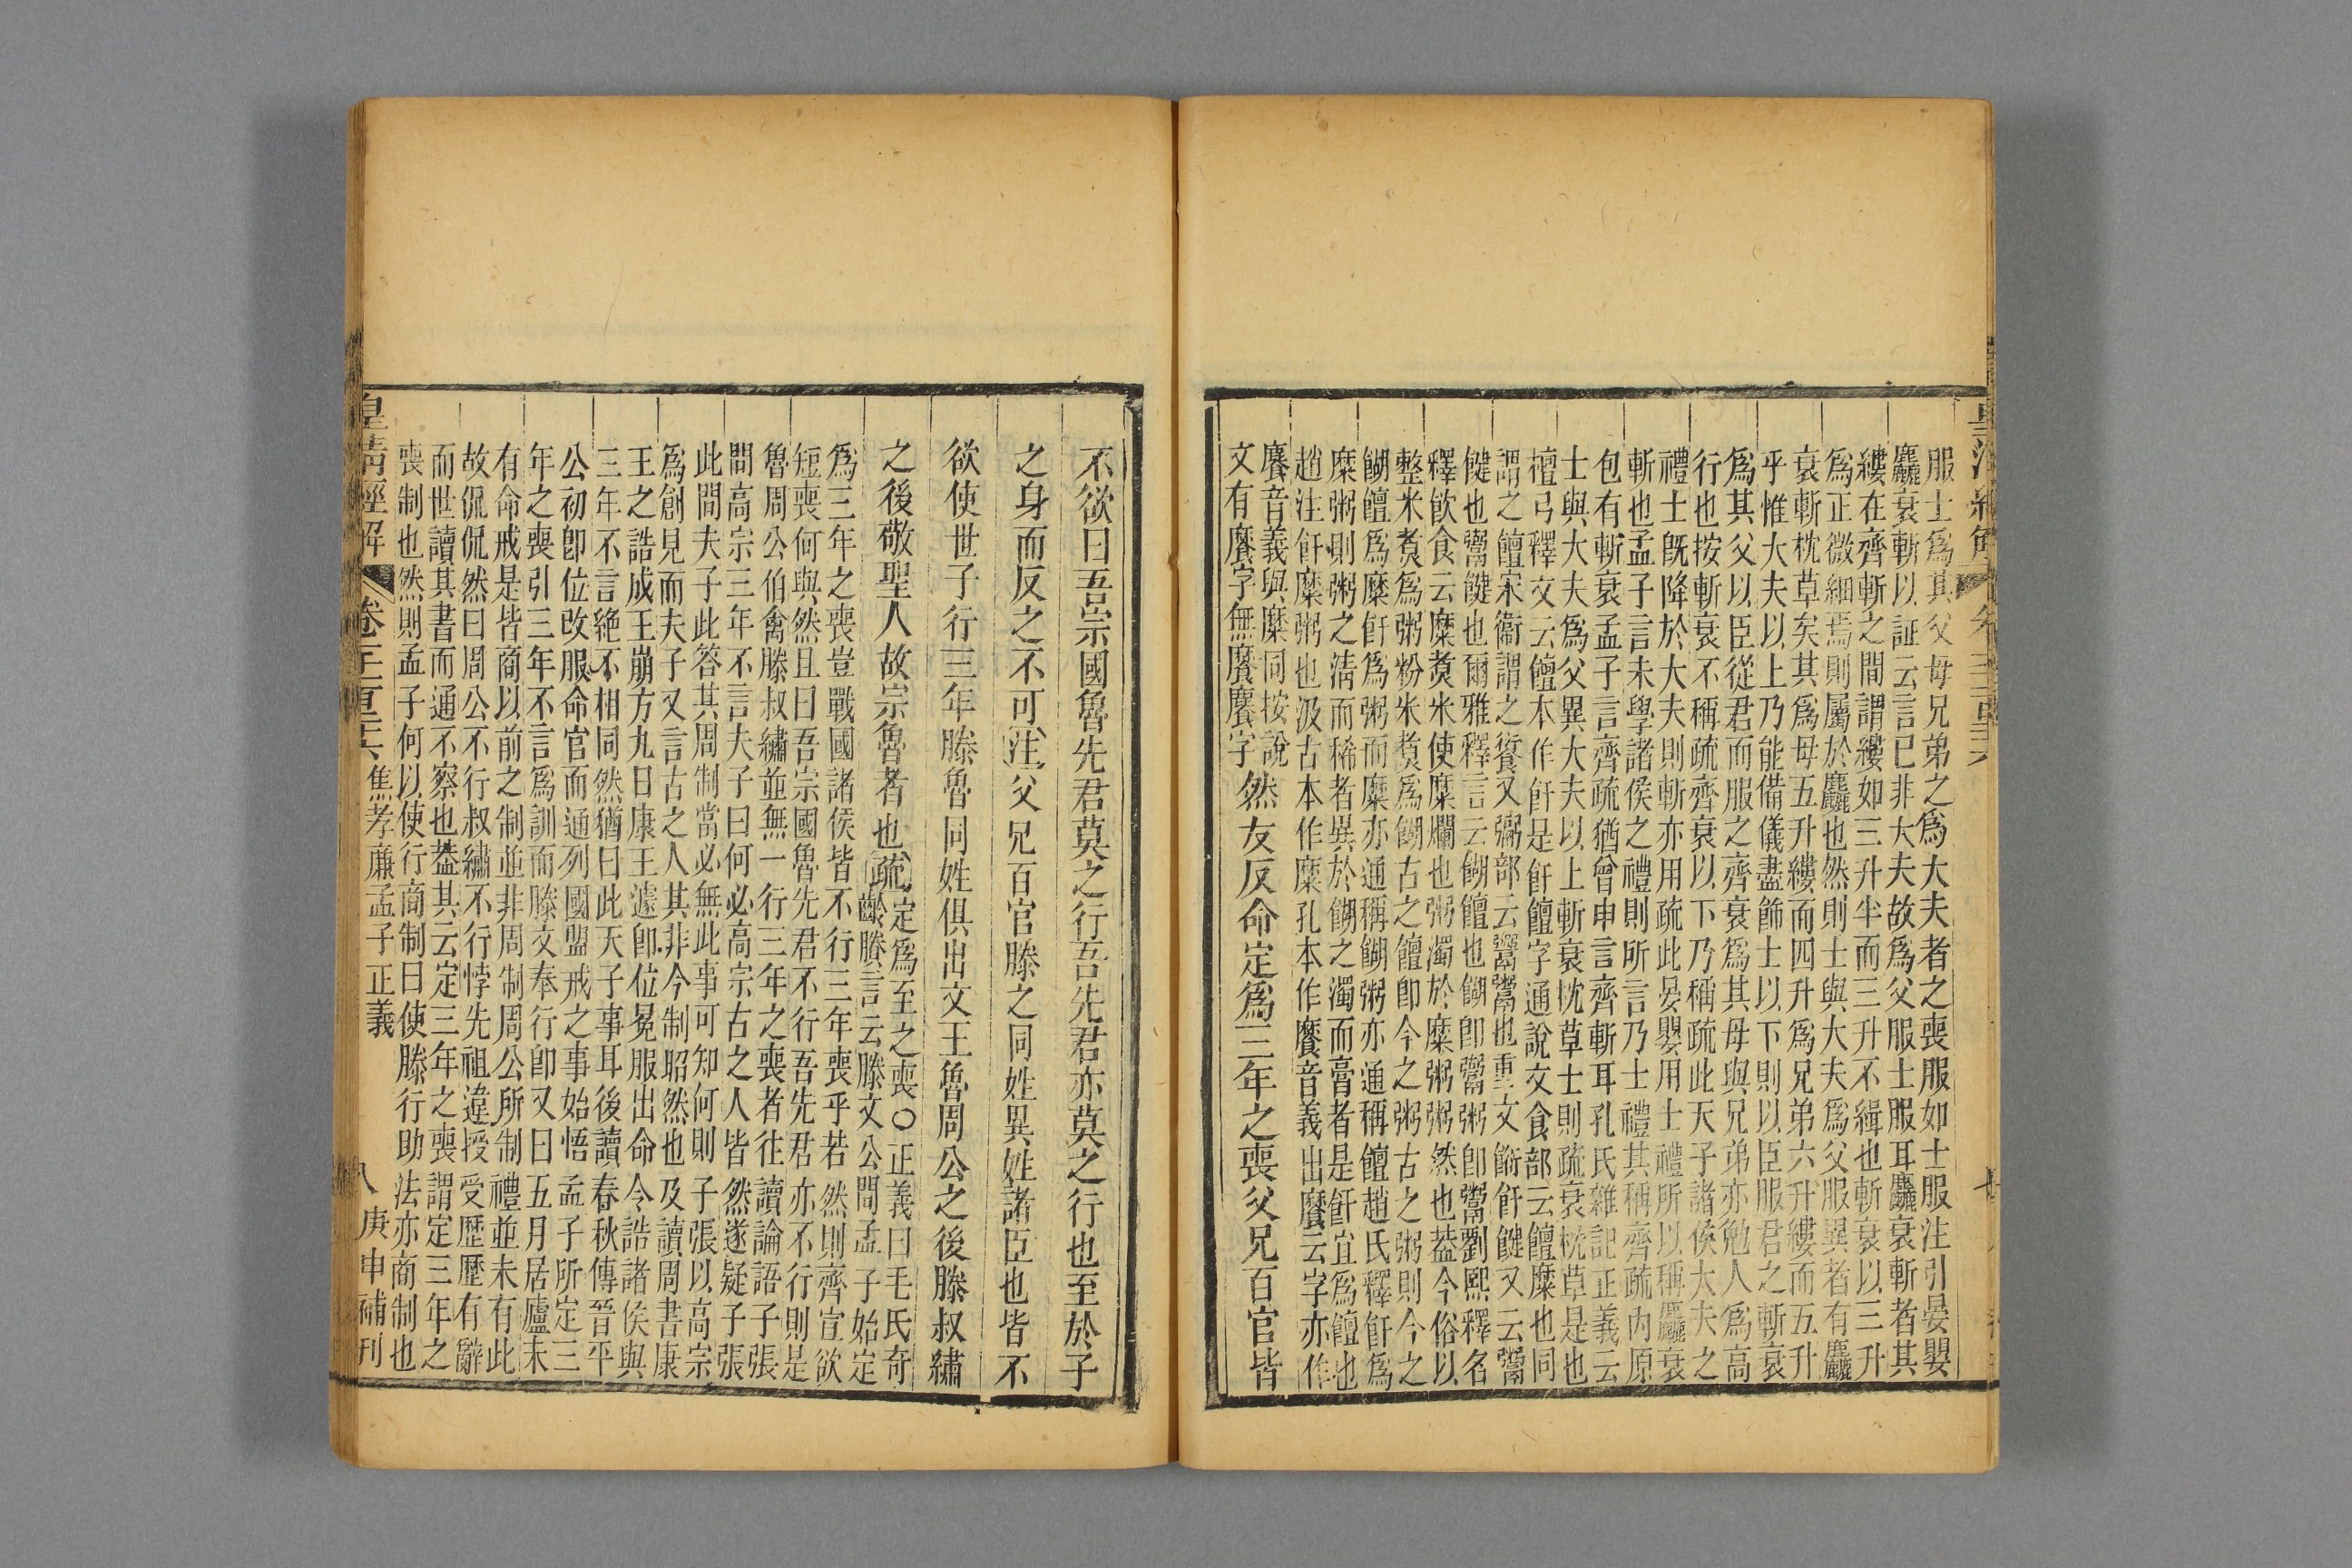 服士爲其父母兄弟之爲大夫者之喪服如士服注引晏嬰
麤衰斬以証云言已非大夫故爲父服士服耳麤衰斬者其
縷在齊斬之間謂縷如三升半而三升不緝也斬衰以三升
爲正微細焉則屬於麤也然則士與大夫爲父服異者有麤
衰斬枕草矣其爲母五升縷而四升爲兄弟六升縷而五升
乎惟大夫以上乃能備儀盡飾士以下則以臣服君之斬衰
爲其父以臣從君而服之齊衰爲其母與兄弟亦勉人爲高
行也按斬衰不稱疏齊衰以下乃稱疏此天子諸侯大夫之
禮士既降於大夫則斬亦用疏此晏嬰用士禮所以稱麤衰
斬也孟子言未學諸侯之禮則所言乃士禮其稱齊疏內原
包有斬衰孟子言齊疏猶曾申言齊斬耳孔氏雜記正義云
士與大夫爲父異大夫以上斬衰枕草士則疏衰枕草是也
檀弓釋文云饘本作飦是飦饘字通說文食部云饘糜也同
謂之饘宋衞謂之餥又弼部云鬻鬻也重文餰飦健又云鬻
健也鬻健也爾雅釋言云餬饘也餬卽鬻粥卽鬻劉熙釋名
釋飮食云糜煑米使糜爛也粥濁於糜粥粥然也葢今俗以
整米煑爲粥粉米煑爲餬古之饘卽今之粥古之粥則今之
餬饘爲糜飦爲粥而糜亦通稱餬粥亦通稱饘趙氏釋飦爲
糜粥則粥之淸而稀者異於餬之濁而膏者是飦宜爲饘也
趙注飦糜粥也汲古本作糜孔本作䊳音義出䊳云字亦作
䊳音義與糜同按說
文有䊳字無䊳䊳字 然友反命定爲三年之喪父兄百官皆
不欲曰吾宗國魯先君莫之行吾先君亦莫之行也至於子
之身而反之不可 注 父兄百官滕之同姓異姓諸臣也皆不
欲使世子行三年滕魯同姓俱出文王魯周公之後滕叔繡
之後敬聖人故宗魯者也 疏 定爲至之喪○正義曰毛氏奇
齡賸言云滕文公問孟子始定
爲三年之喪豈戰國諸侯皆不行三年喪乎若然則齊宣欲
短喪何與然且曰吾宗國魯先君不行吾先君亦不行則是
魯周公伯禽滕叔繡並無一行三年之喪者往讀論語子張
問高宗三年不言夫子曰何必高宗古之人皆然遂疑子張
此間夫子此答其周制當必無此事可知何則子張以高宗
爲創見而夫子又言古之人其非今制昭然也及讀周書康
王之誥成王崩方九日康王遽卽位冕服出命令誥諸侯與
三年不言絶不相同然猶曰此天子事耳後讀春秋傳晉平
公初卽位改服命官而通列國盟戒之事始悟孟子所定三
年之喪引三年不言爲訓而滕文奉行卽又曰五月居廬未
有命戒是皆商以前之制並非周制周公所制禮並未有此
故侃侃然曰周公不行叔繡不行悖先祖違授受歷歷有辭
而世讀其書而通不察也葢其云定三年之喪謂定三年之
喪制也然則孟子何以使行商制曰使滕行助法亦商制也
皇淸經解 卷 焦孝廉孟子正義 八 庚申補刊